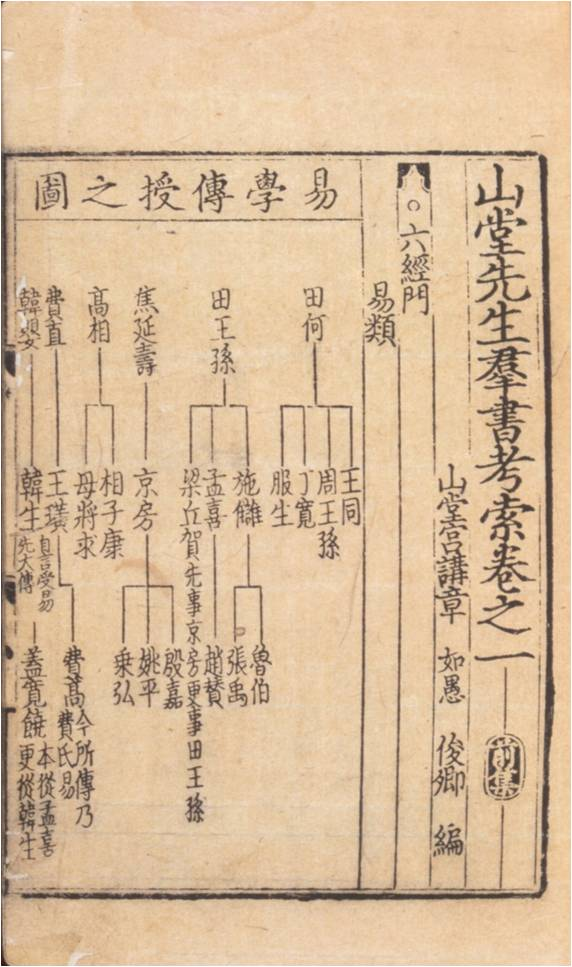 山堂先生羣書考索卷之一
前集
山堂宫講章 如愚 俊卿 編
六經門
易類
易學傳授之圖
田何
王同
周王孫
丁寬
服生
田王孫
施讎
魯伯
張禹
孟喜
趙賛
梁丘賀先事京房更事田王孫
焦延壽
京房
殷嘉
姚平
乗弘
高相
相子康
母將求
費直
王璜
費髙
今所傳乃
費氏易
韓嬰
韓生
自言受易
先大傳
蓋寬饒
本從孟喜
更從韓生